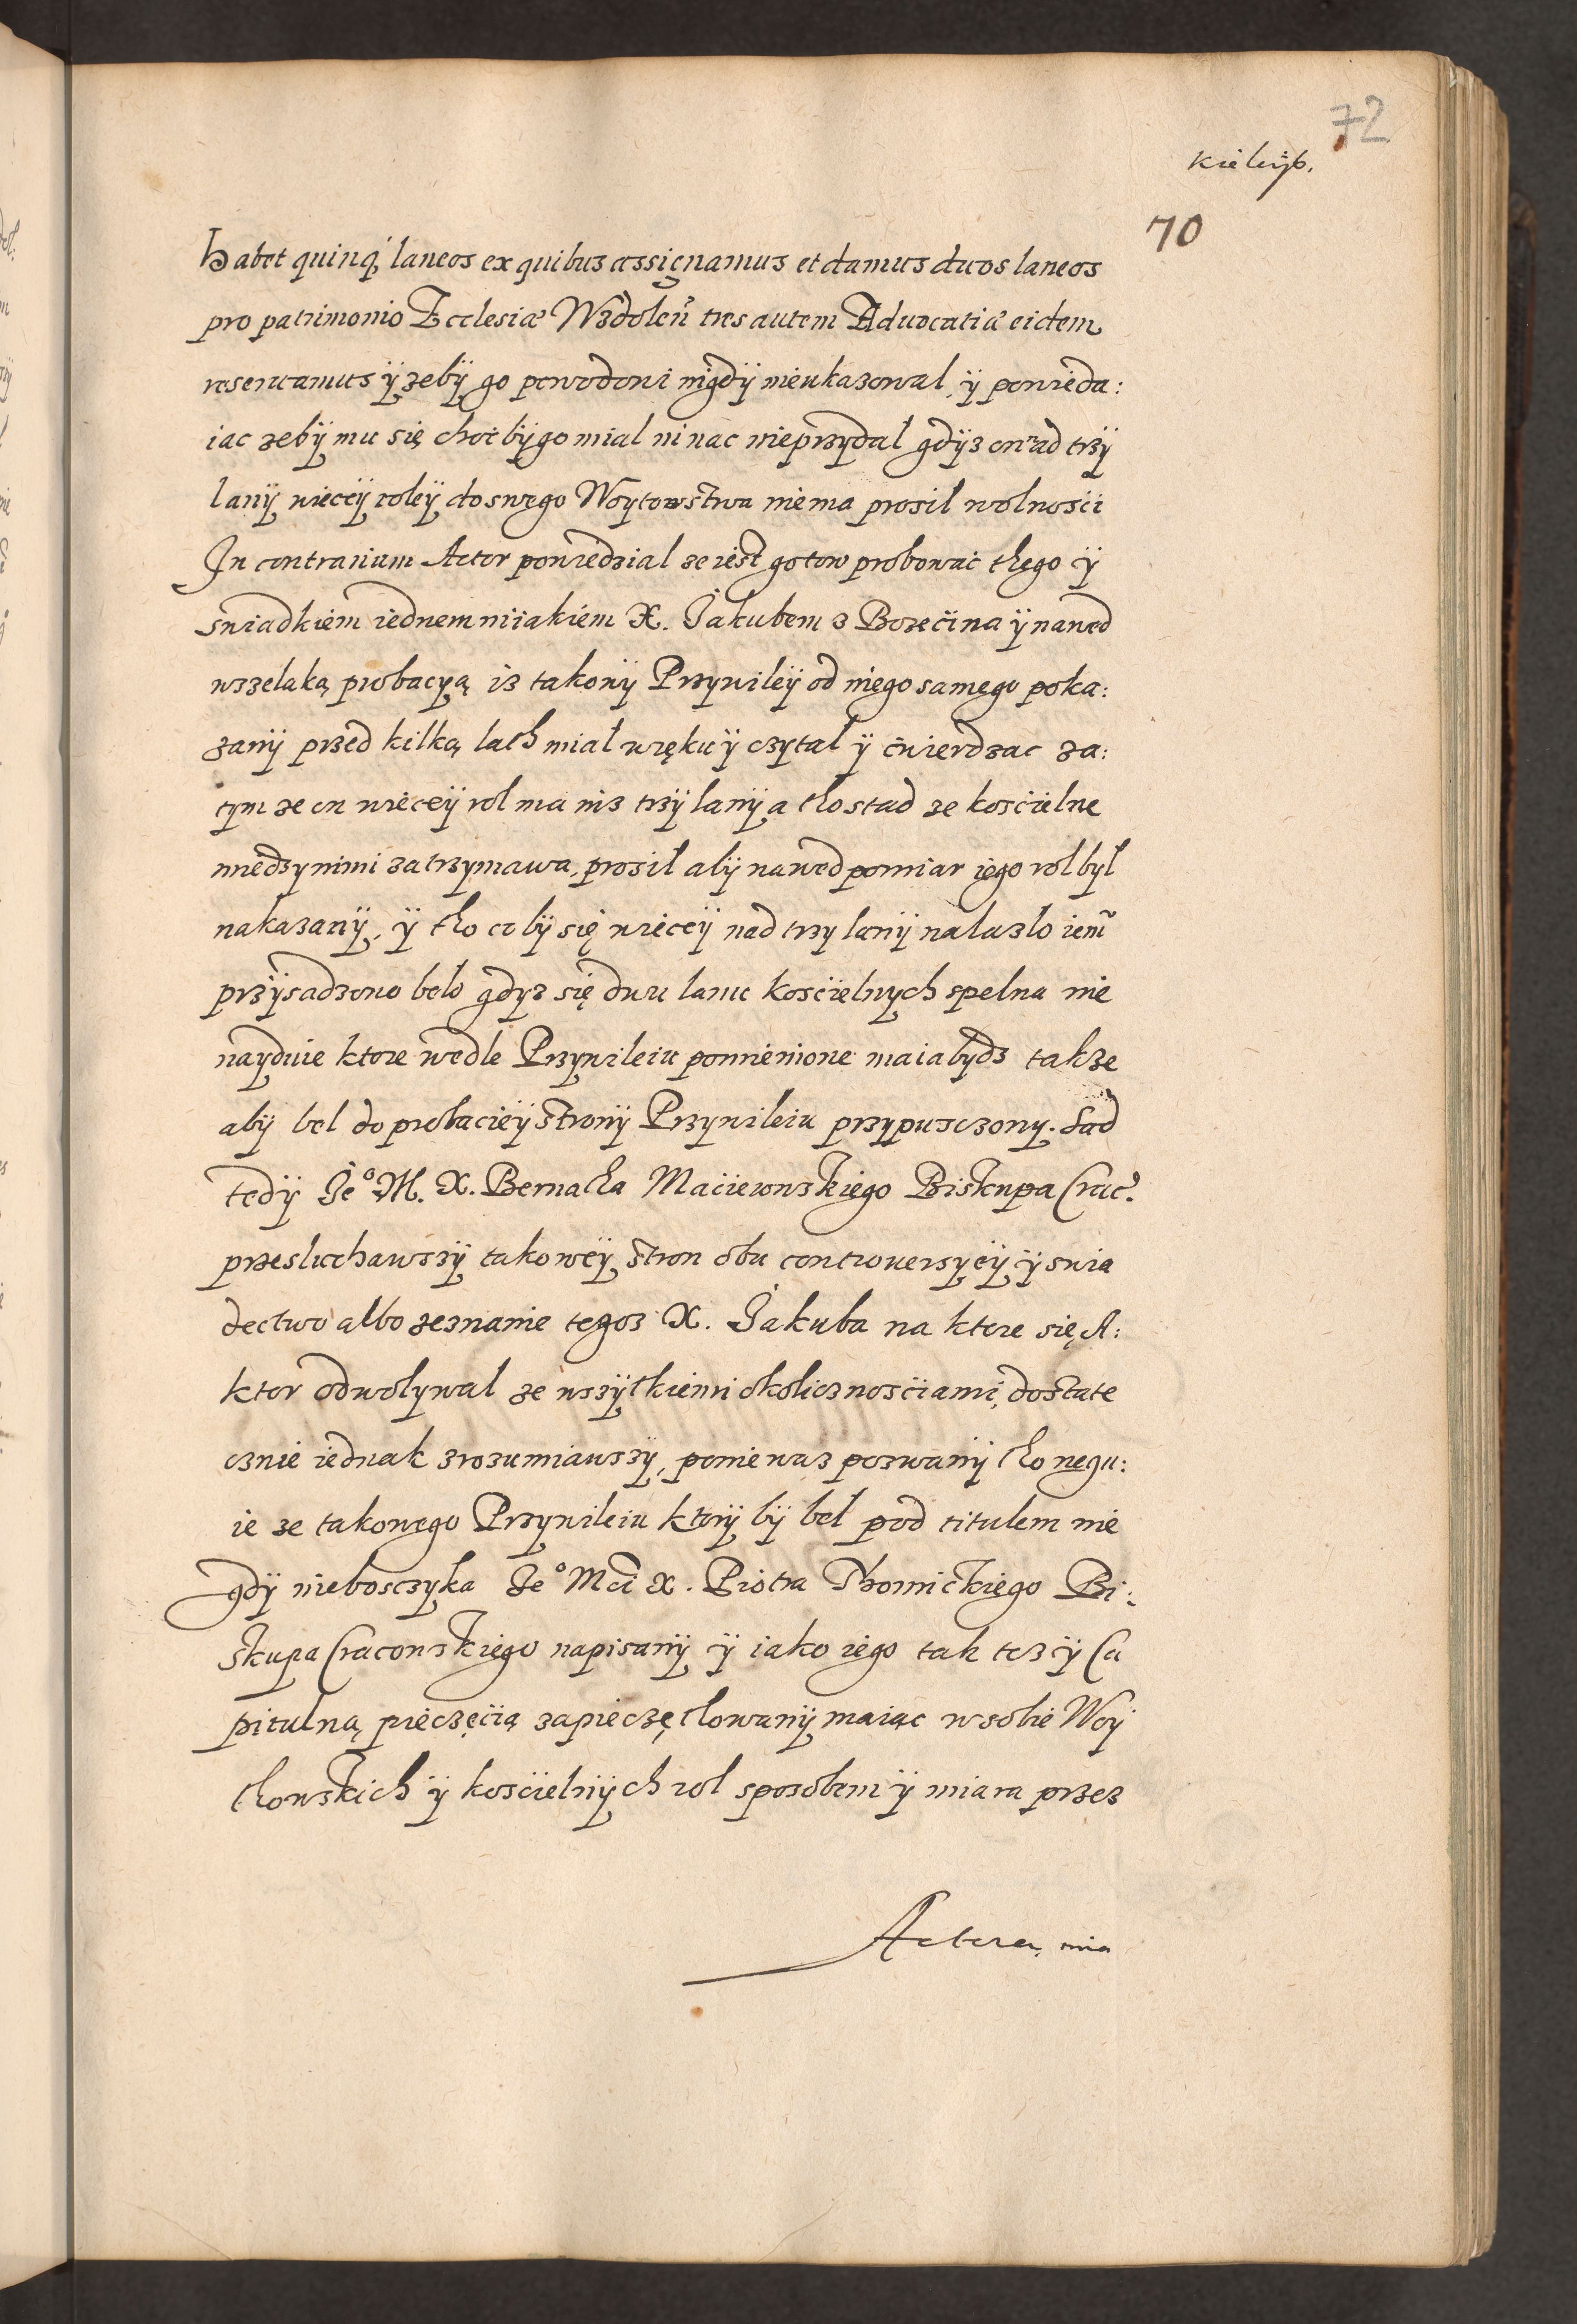 72
70
Habet quinq́ laneos ex quibus assignamus et damus duos laneos
pro patrimonio Ecclesiæ Wzdoleñ tres autem Aduocatiæ eidem
reseruamus ÿ zebÿ go powodowi nigdÿ nieukazowal, ÿ powieda:
iac zebÿ mu się choćbÿ go mial ninac nieprzydal gdÿz on nad trzÿ
lanÿ wiecéÿ roleÿ do swego Woytowstwa niema prosil wolnosci
In contrarium Actor powiedzial ze iest gotow probowac thego ÿ
swiadkiem iednem niiakiem X. Jakubem z Bozecina ÿ nawed
wszelaką probacyą iz takowÿ Przywileÿ od niego samego poka:
zanÿ przed kilką lath mial wręku ÿ czytal ÿ ćwierdzac za:
tym ze on wieceÿ rol ma niz trzÿ lanÿ a tho stad ze koscielne
miedzy nimi zatrzymawa, prosil abÿ nawed pomiar iego rol byl
nakazanÿ, ÿ tho co bÿ się wieceÿ nad trzy lanÿ nalazlo iem̃
przÿsadzono belo gdyz się dwu lanu koscielnych spelna nie
nayduie ktore wedle Przywileiu pomienione maia bydz takze
abÿ bel do probacieÿ stronÿ Przywileiu przypusczony. Sad
tedÿ Je⁰ M. X. Bernatha Macieiowskiego Biskupa Crac.
przesluchawszÿ takoweÿ stron obu controuersyeÿ ÿ swia
dectwo albo zeznanie tegoz X. Jakuba na ktore się A:
ktor odwolywal ze wszÿtkiemi okolicznosciami, dostate
cznie iednak zrozumiawszÿ, poniewaz pozwanÿ tho negu:
ie ze takowego Przywileiu ktorÿ bÿ bel pod titulem nie
gdÿ niebosczyka Je⁰ Mci X. Piotra Thomickiego Bi:
skupa Cracowskiego napisanÿ ÿ iako iego tak tez ÿ Ca
pitulną pieczęcią zapieczęthowanÿ maiąc w sobie Woÿ
thowskich ÿ koscielnÿch rol sposobem ÿ miara przez